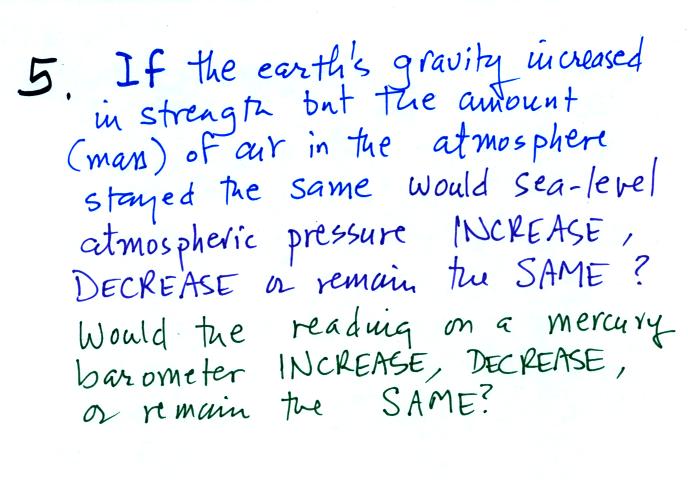 5. If the earth's gravity increased
in strength but the amount
(mass) of air in the atmosphere
stayed the same would sea-level
atmospheric pressure INCREASE,
DECREASE or remain the SAME?
Would the reading on a mercury
barometer INCREASE, DECREASE,
or remain the SAME?